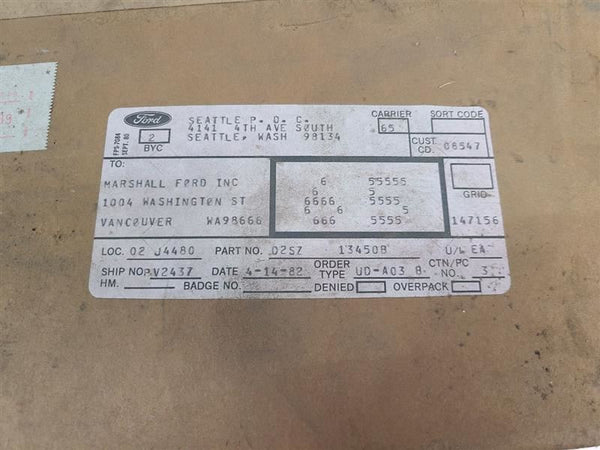 Ford
SEATTLE P. D. C.
4141 4TH AVE SOUTH
SEATTLE, WASH 98134
FPS 7084
SEPT. 80
2
BYC
CARRIER
65
SORT CODE
CUST. CD.
08547
TO:
MARSHALL FORD INC
1004 WASHINGTON ST
VANCOUVER WA98666
6 55555
6 5
6666 5555
6 6 5
666 5555
GRID
147156
LOC. 02 J4480 PART NO. D2SZ 13450B U/L EA
SHIP NO. V2437 DATE 4-14-82 ORDER TYPE UD-A03 8 CTN/PC NO. 3
HM. BADGE NO. DENIED OVERPACK